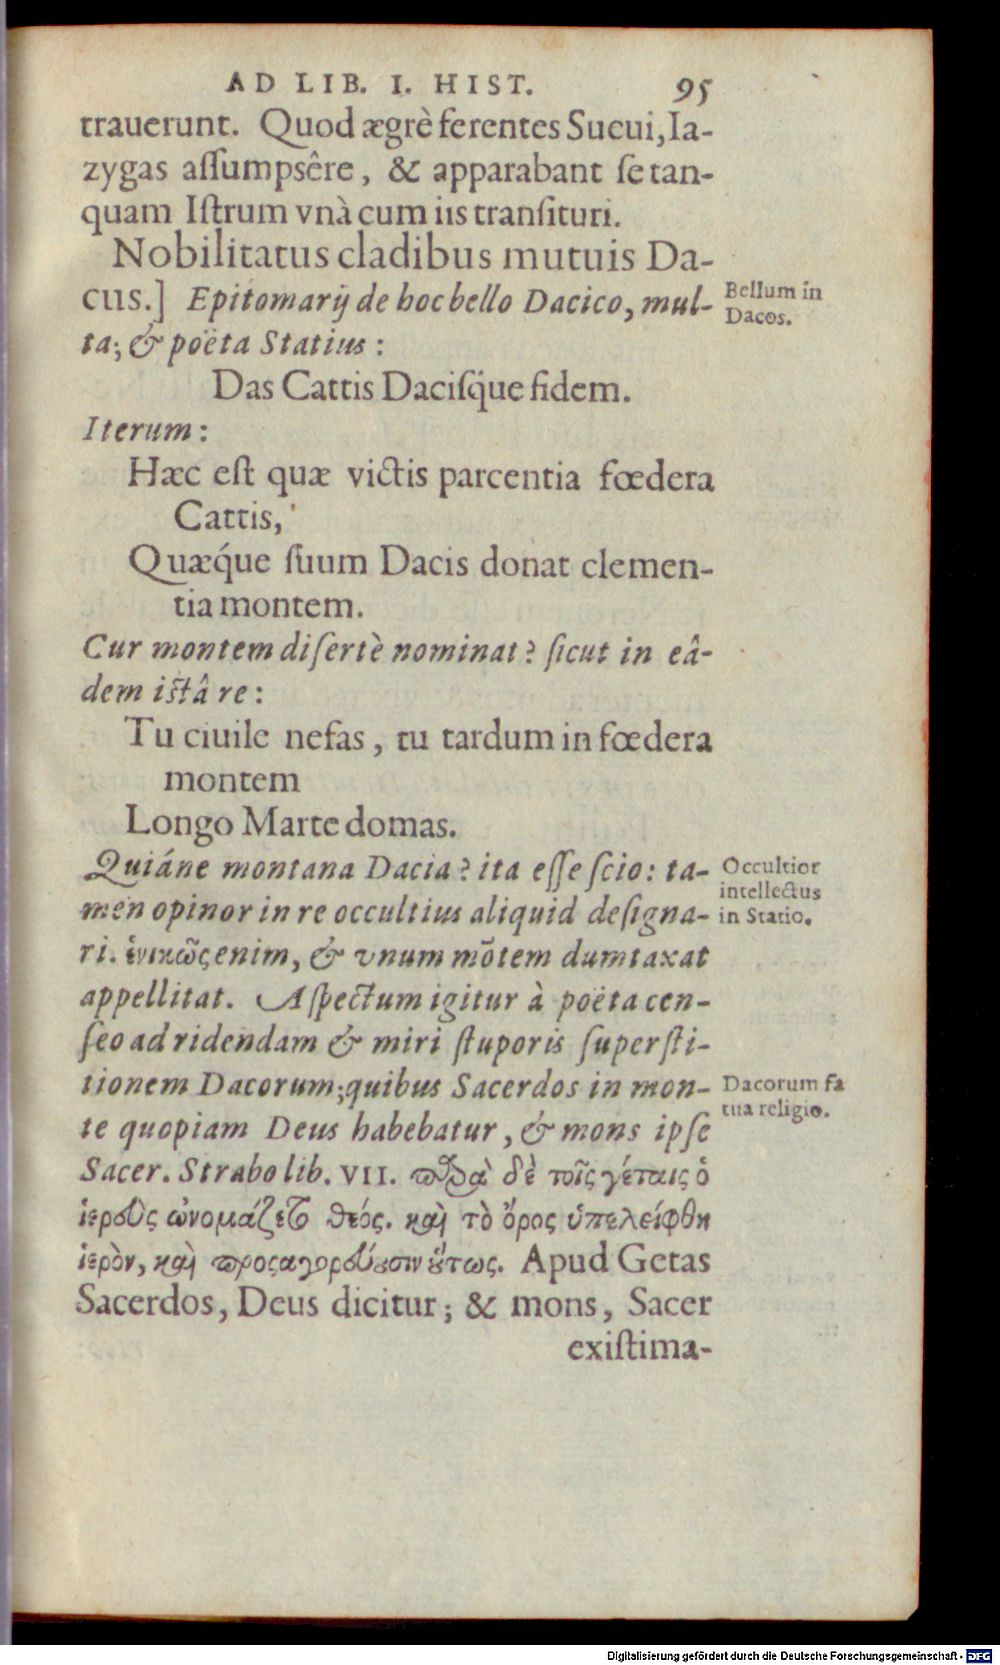 AD LIB. I. HIST. 95
trauerunt. Quod ægrè ferentes Sueui, Ia-
zygas aſſumpsêre, & apparabant ſe tan-
quam Iſtrum vnà cum iis tranſituri.
Nobilitatus cladibus mutuis Da-
cus.] Epitomarij de hoc bello Dacico, mul-
Bellum in
Dacos.
ta; & poëta Statius:
Das Cattis Daciſq́ue fidem.
Iterum:
Hæc eſt quæ victis parcentia fœdera
Cattis,
Quæq́ue ſuum Dacis donat clemen-
tia montem.
Cur montem diſertè nominat? ſicut in eâ-
dem iſtâ re:
Tu ciuile nefas, tu tardum in fœdera
montem
Longo Marte domas.
Quiáne montana Dacia? ita eſſe ſcio: ta-
men opinor in re occultius aliquid deſigna-
Occultior
intellectus
in Statio.
ri. ἑνικῶς enim, & vnum mõtem dumtaxat
appellitat. Aſpectum igitur à poëta cen-
ſeo ad ridendam & miri ſtuporis ſuperſti-
tionem Dacorum; quibus Sacerdos in mon-
Dacorum fa
tua religio.
te quopiam Deus habebatur, & mons ipſe
Sacer. Strabo lib. VII. παρὰ δὲ τοῖς γέταις ὁ
ἱερεὺς ὠνομάζετο θεός. καὶ τὸ ὄρος ὑπελείφθη
ἱερὸν, καὶ προσαγορεύουσιν οὕτως. Apud Getas
Sacerdos, Deus dicitur; & mons, Sacer
exiſtima-
Digitalisierung gefördert durch die Deutsche Forschungsgemeinschaft - DFG